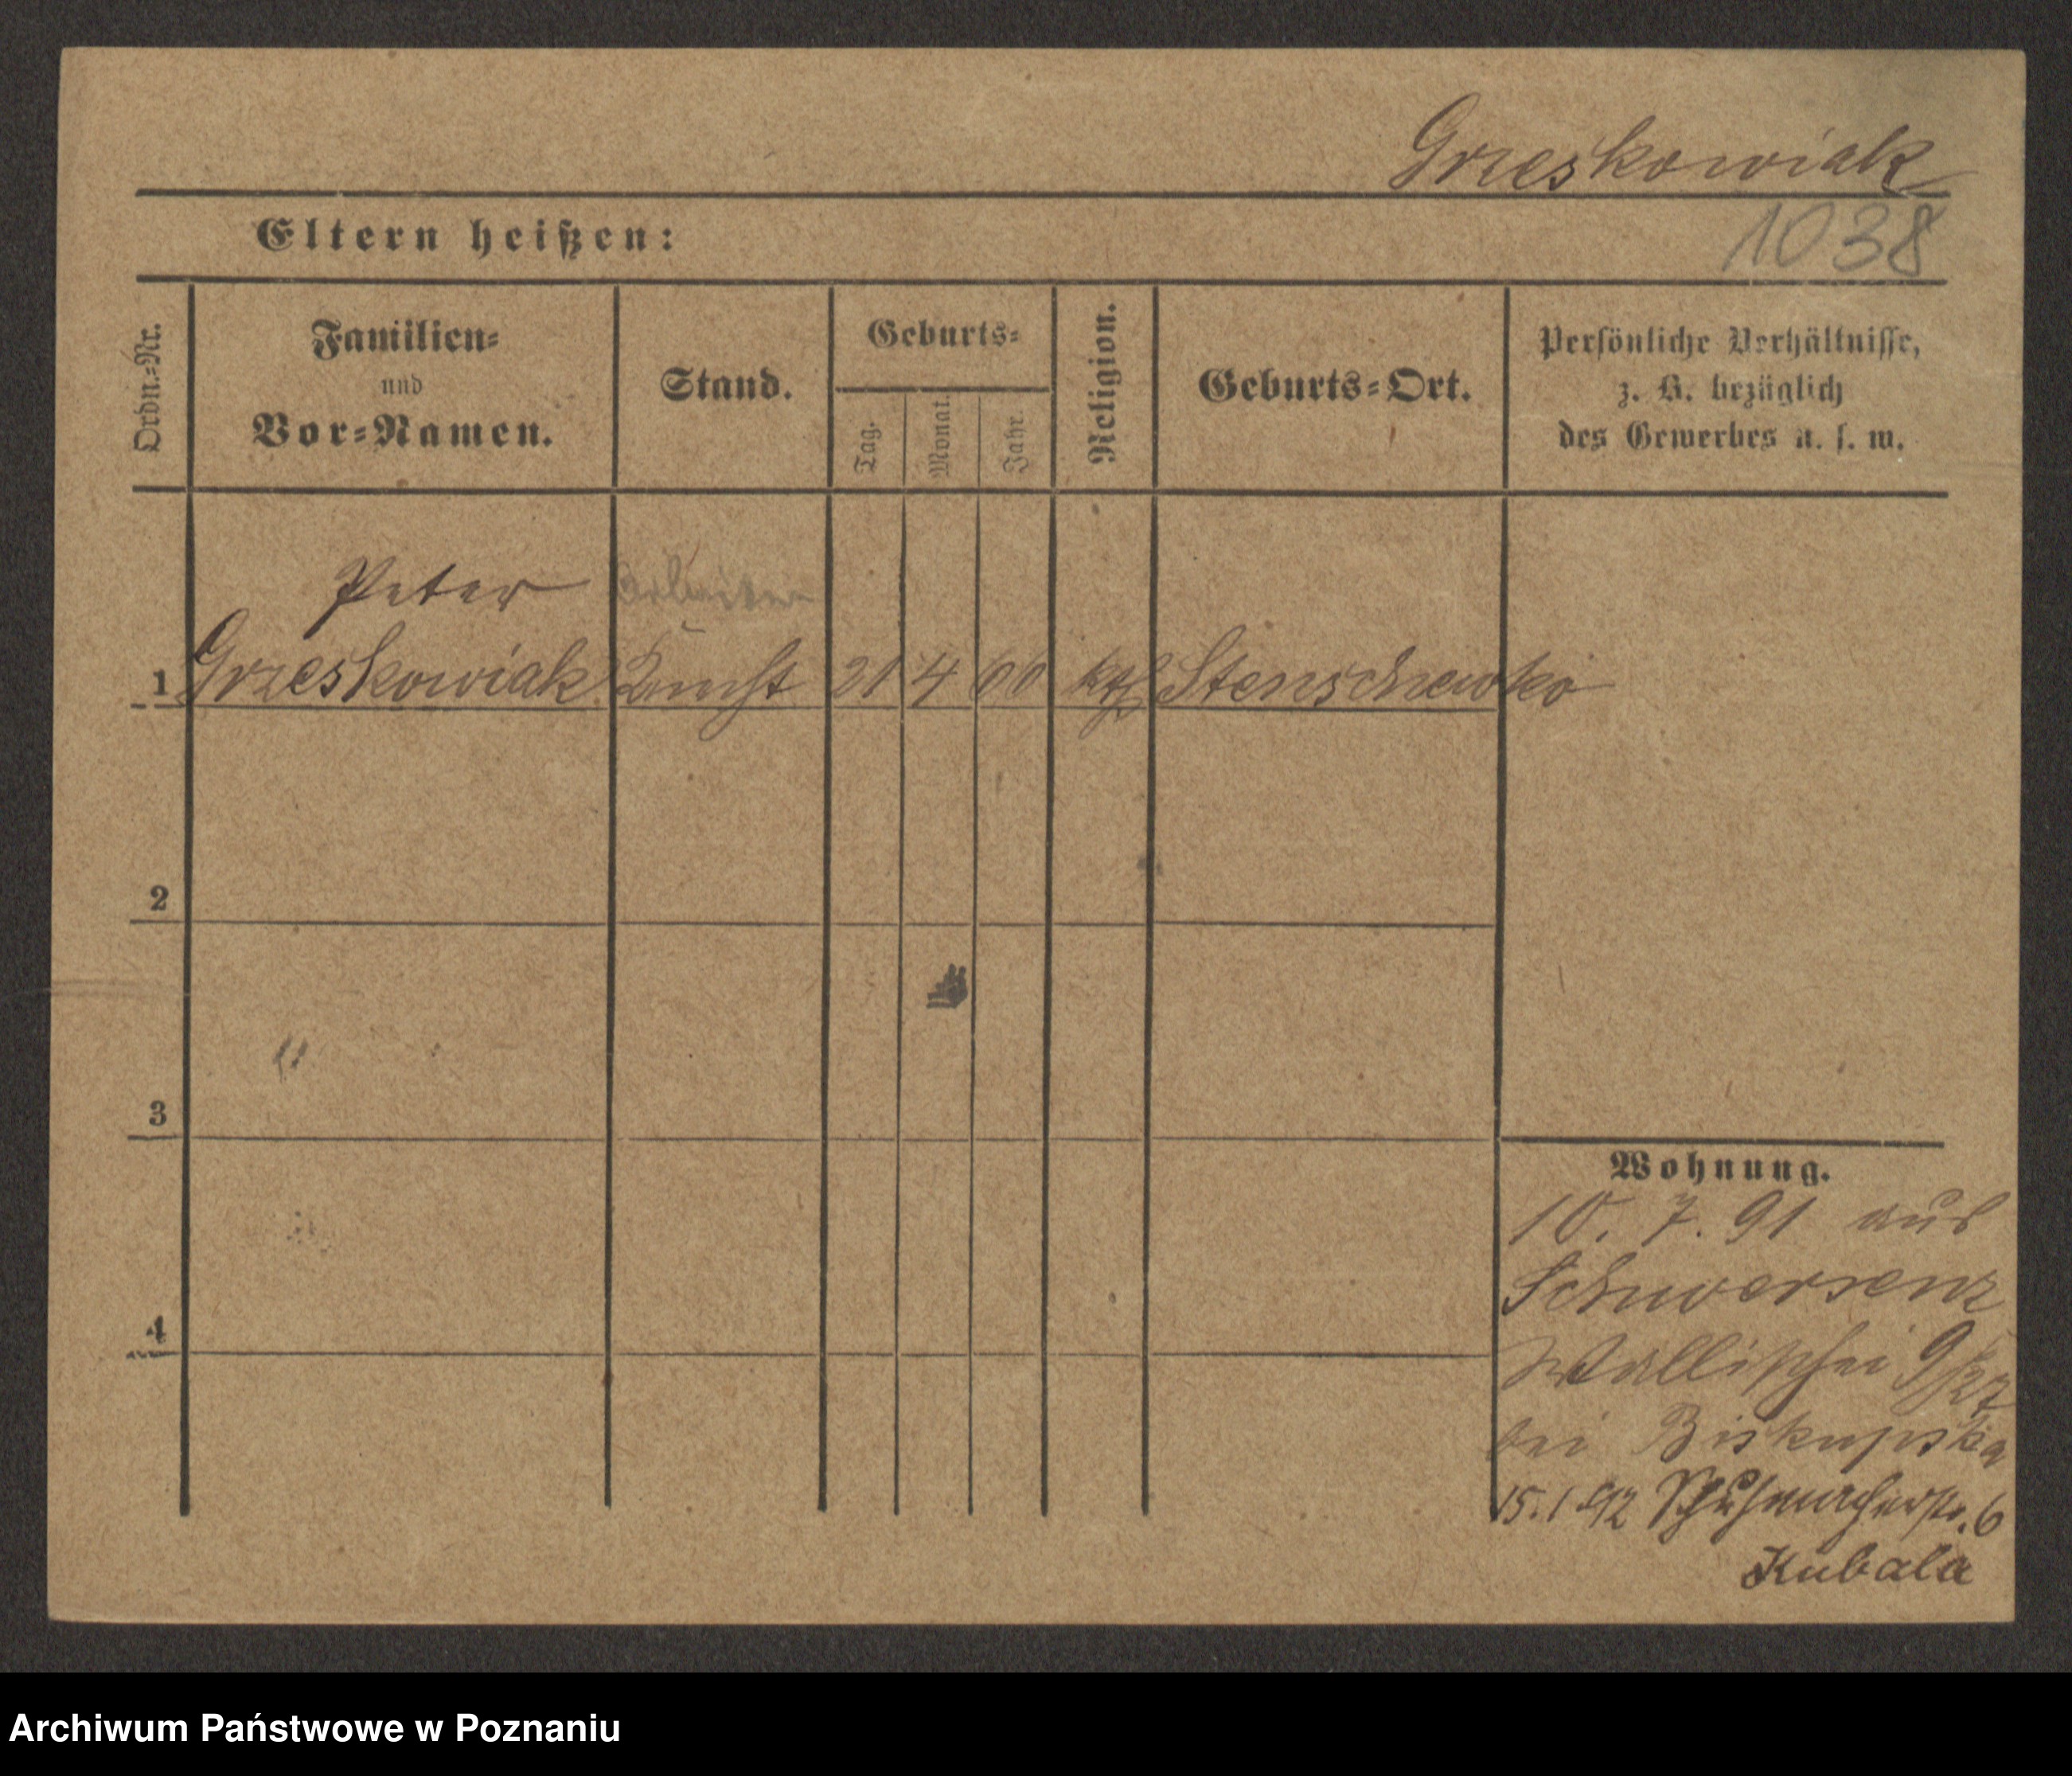 Grzeskowiak
Eltern heißen:
1038
Ordn.-Nr.
Familien-
und
Vor-Namen.
Stand.
Geburts-
Tag.
Monat.
Jahr.
Religion.
Geburts-Ort.
Persönliche Verhältnisse,
z. B. bezüglich
des Gewerbes u. s. w.
Peter Arbeiter
1 Grzeskowiak Knecht 21 4 60 kth Stenschewko
2
3
4
Wohnung.
10. 7. 91 aus
Schwersenz
Wallischei
bei Biskupska
15.1.92 Schuhmacherstr. 6
Kubala
Archiwum Państwowe w Poznaniu